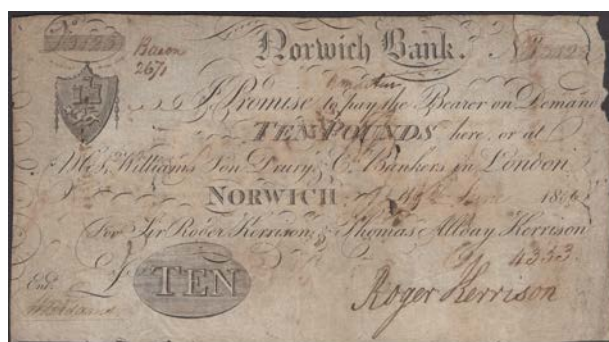 Norwich Bank.
Bacon
2671
I Promise to pay the Bearer on Demand
TEN POUNDS here, or at
Williams Son Drury & Co. Bankers in London
NORWICH June
For Sir Roger Kerrison & Thomas Allday Kerrison
4353
TEN
Roger Kerrison
Entd.